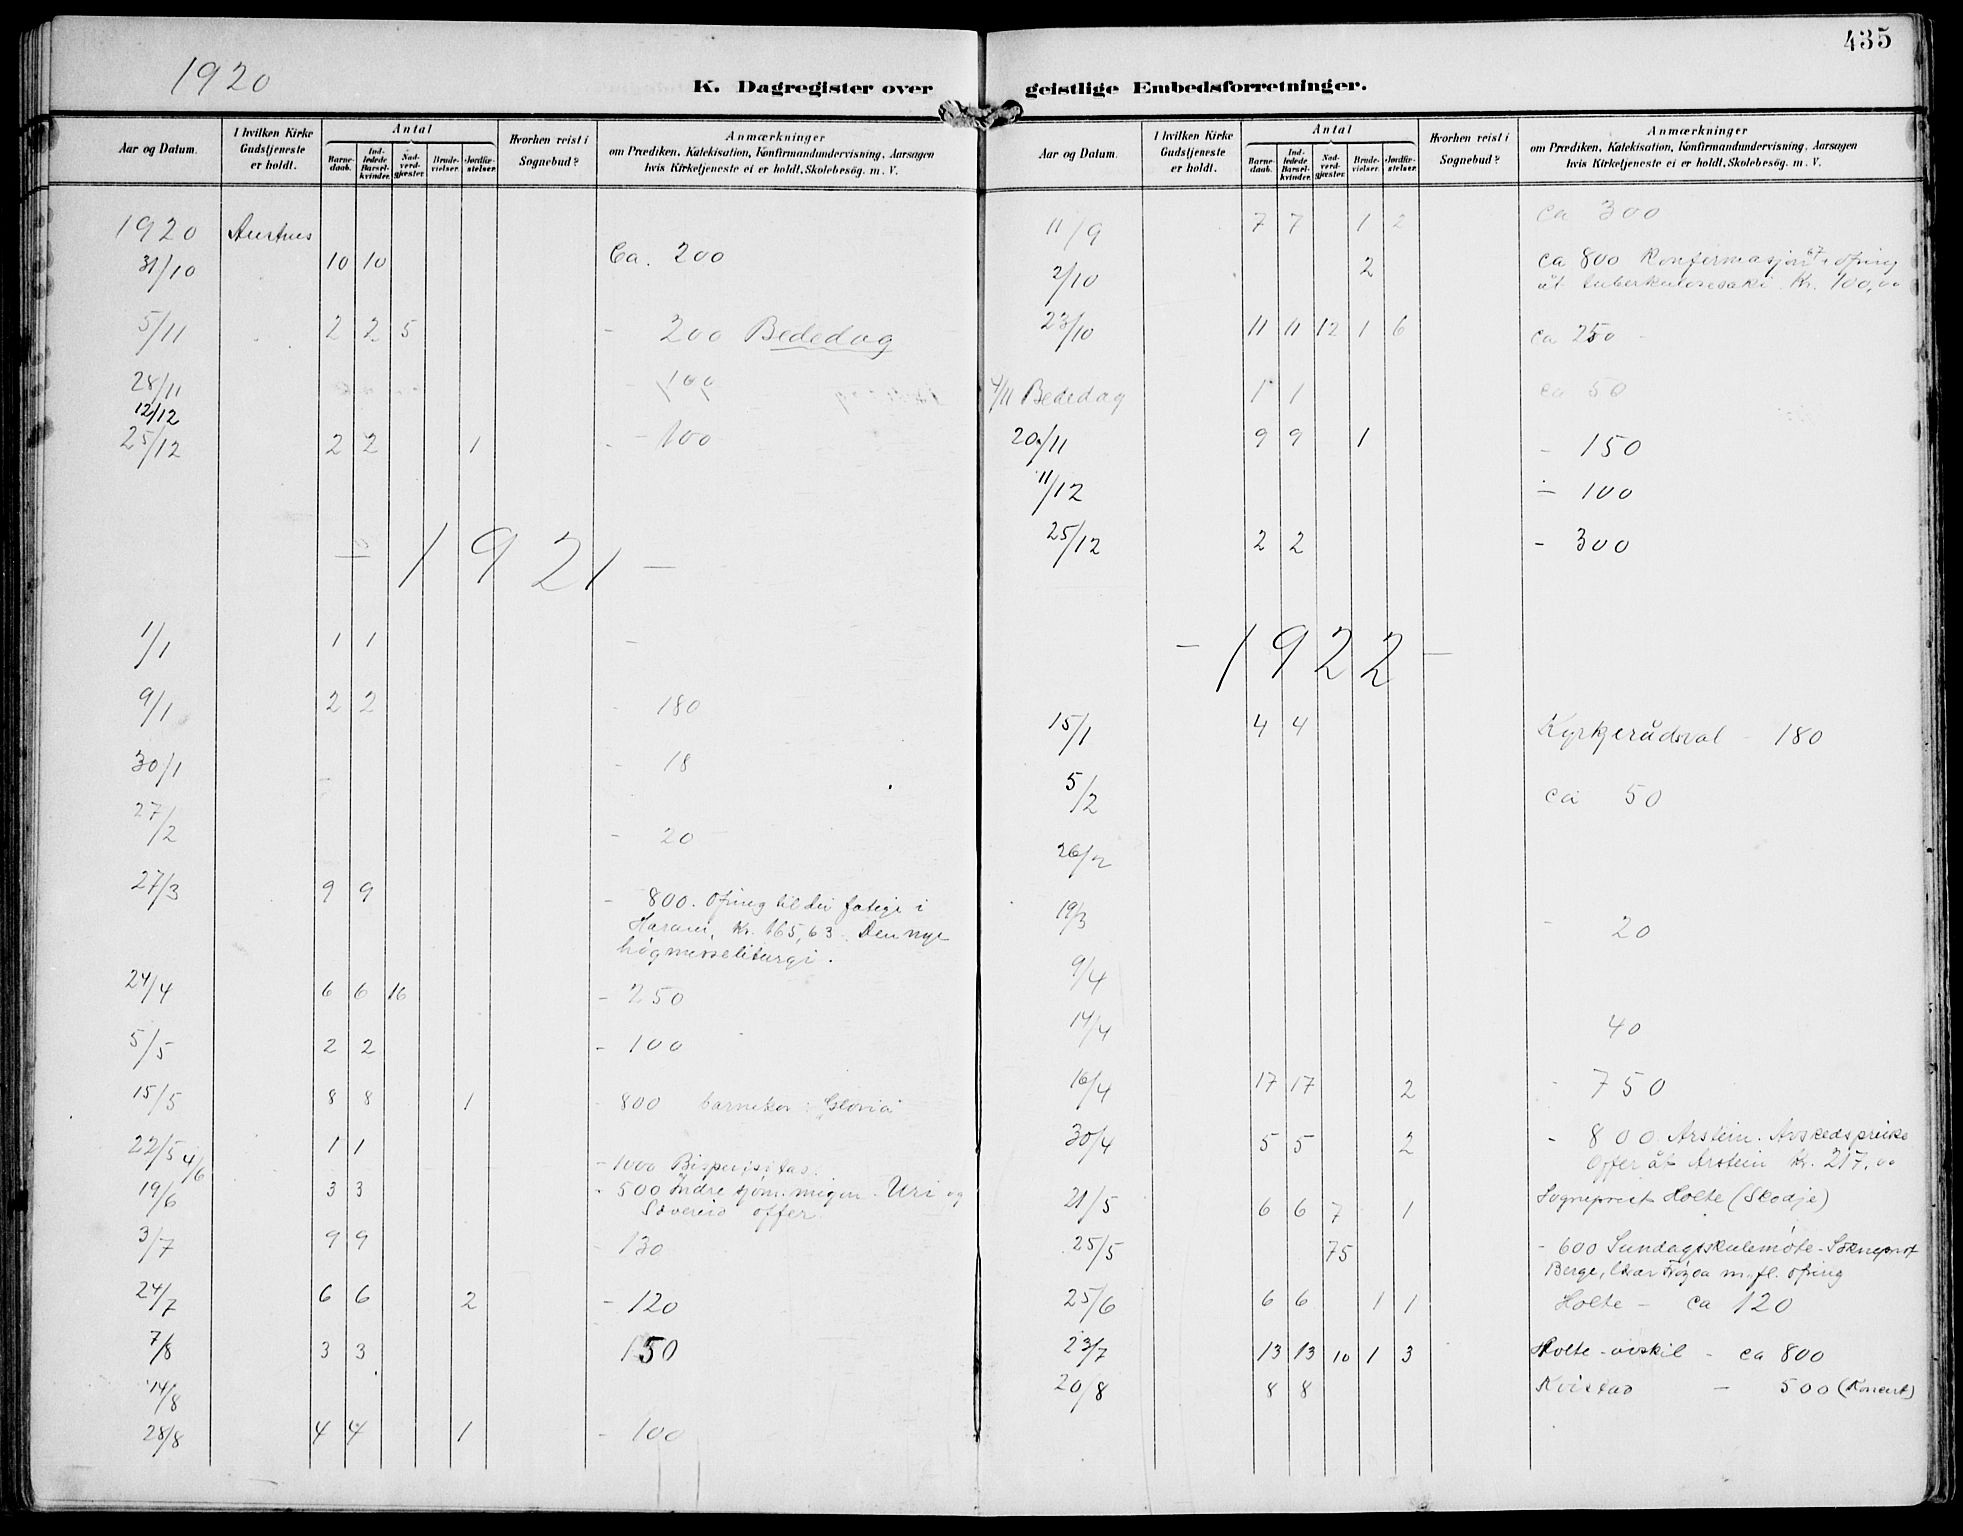 435
1920
K. Dagregister over geistlige Embedsforretninger.
Aar og Datum.
I hvilken Kirke Gudstjeneste er holdt.
Antal
Barnedaab. Indledede Barselkvinder. Nadverdgjæster. Brudevielser. Jordfæstelser.
Hvorhen reist i Sognebud?
Anmærkninger
om Prædiken, Katekisation, Konfirmandundervisning, Aarsagen
hvis Kirketjeneste ei er holdt, Skolebesøg. m. V.
1920
31/10 10 10 Ca. 200
5/11 2 2 5 - 200 Bededag
28/11 - 100
12/12
25/12 2 2 1 - 100
1921 -
1/1 1 1 -
9/1 2 2 - 180
30/1 - 18
27/2 - 20
27/3 9 9 - 800. Ofring til dei fatige i
Harami, Kr. 165,63. Den nye
høgmesseliturgi.
24/4 6 6 16 - 250
5/5 2 2 - 100
15/5 8 8 1 - 800 barnekor
22/5 1 1
4/6 - 1000 Bispevisitas.
19/6 3 3 - 500 Indre sjøm. misjon. Uri og
offer.
3/7 9 9 - 130
24/7 6 6 2 - 120
7/8 3 3 150
14/8
28/8 4 4 1 - 100
Aar og Datum.
I hvilken Kirke Gudstjeneste er holdt.
Antal
Barnedaab. Indledede Barselkvinder. Nadverdgjæster. Brudevielser. Jordfæstelser.
Hvorhen reist i Sognebud?
Anmærkninger
om Prædiken, Katekisation, Konfirmandundervisning, Aarsagen
hvis Kirketjeneste ei er holdt, Skolebesøg. m. V.
11/9 7 7 1 2 ca 300
2/10 2 ca 800 Konfirmasjon ofring
åt tuberkulosesaki. Kr. 100,00
23/10 11 11 12 1 6 ca 250
4/11 Bededag 1 1 ca 50
20/11 9 9 1 - 150
11/12 - 100
25/12 2 2 - 300
- 1922 -
15/1 4 4 Kyrkjerådsval - 180
5/2 ca 50
26/2
19/3 - 20
9/4
14/4 40
16/4 17 17 2 - 750
30/4 5 5 2 - 800 Arstein. Avskedspreike
Offer åt Arstein Kr. 217,00
21/5 6 6 7 1 Sogneprest Holte (Skodje)
25/5 75 - 600 Sundagsskulemøte - Sokneprest
Berge, m. fl. ofring
25/6 6 6 1 1 Holte - ca 120
23/7 13 13 10 1 3 Holte - avskil - ca 800
20/8 8 8 Kvistad - 500 (Konsert)